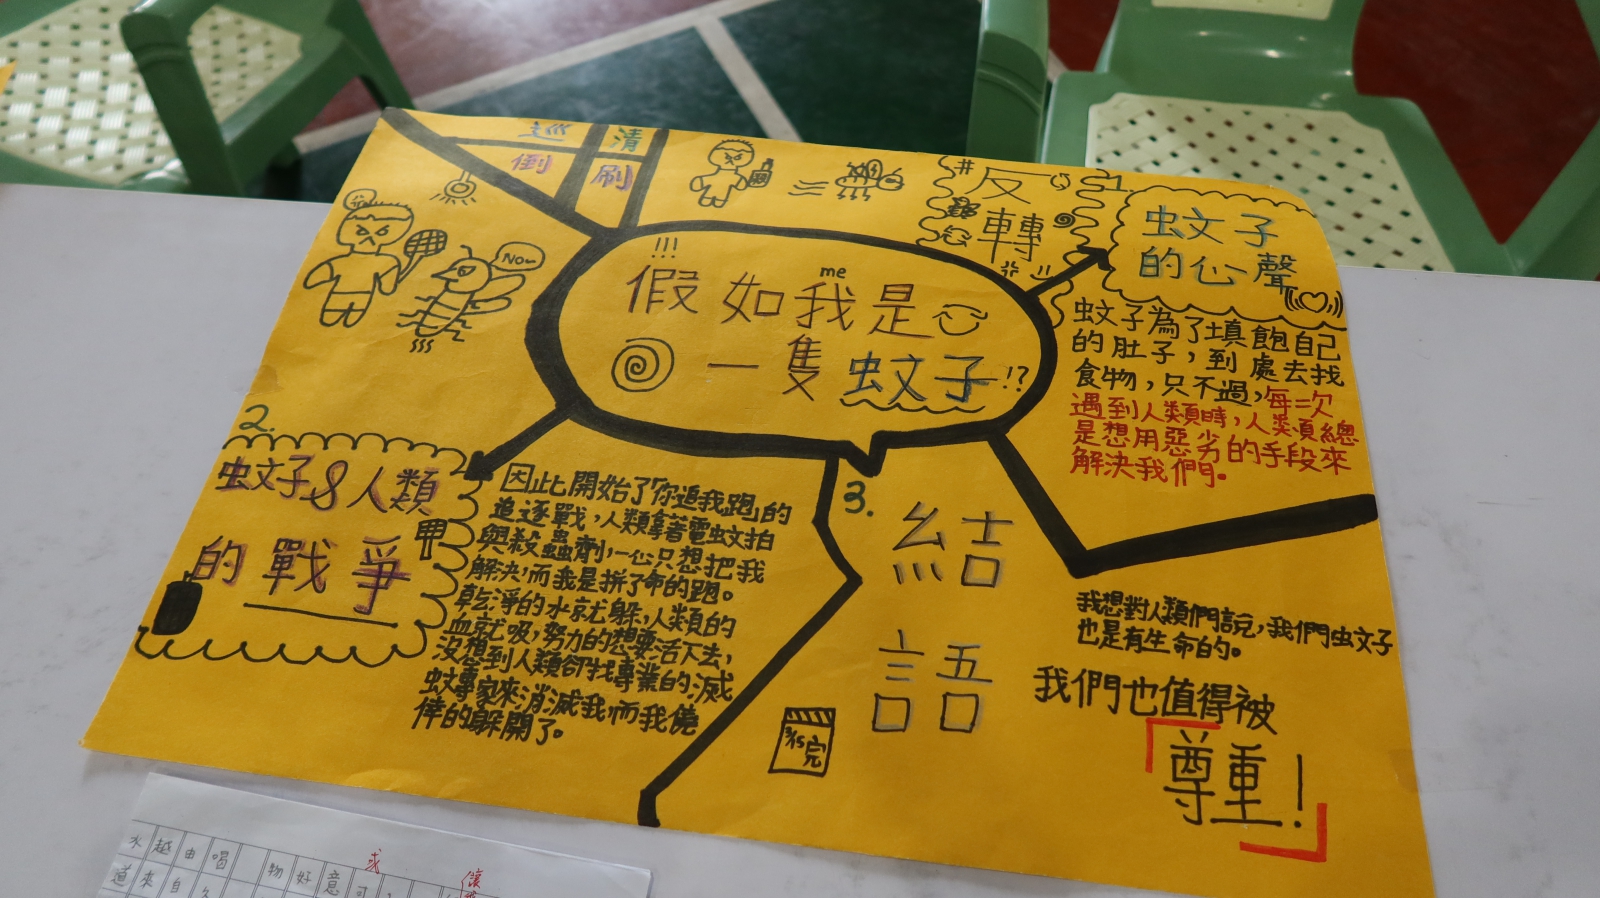 巡 清
倒 刷
No~
#反
轉
!!!
me
假如我是
一隻蚊子!?
1.
蚊子
的心聲
蚊子為了填飽自己
的肚子，到處去找
食物，只不過，每一次
遇到人類時，人類總
是想用惡劣的手段來
解決我們。
2.
蚊子&人類
的戰爭
因此開始了「你追我跑」的
追逐戰，人類拿著電蚊拍
與殺蟲劑，一心只想把我
解決，而我是拼了命的跑。
乾淨的水就躲，人類的
血就吸，努力的想要活下去，
沒想到人類卻找專業的滅
蚊專家來消滅我，而我僥
倖的躲開了。
3.
結
語
3/15
完
我想對人類們說，我們蚊子
也是有生命的。
我們也值得被
「尊重！」
水越由喝 物好意
道來自久
或